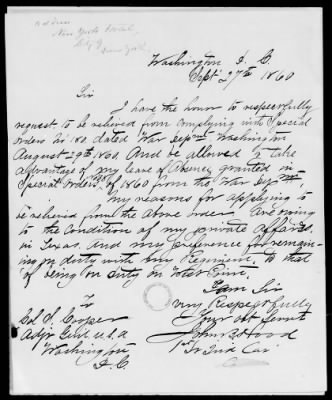 Address
New York Hotel,
City of
New York
Washington D. C.
Sept 27th 1860
Sir
I have the honor to respectfully
request to be relieved from complying with Special
Orders No 180 dated War Depmt Washington
August 29th, 1860. And be allowed to take
advantage of my Leave of Absence granted in
Special Orders, of 1860 from the War Depmt,
My reasons for applying to
be relieved from the above order Are owing
to the condition of my private Affairs
in Texas. And my preference for remain-
ing on duty with my Regiment, to that
of being on duty on West Point.
I am Sir
Very Respectfully
Your obt Servt
John B Hood
1st Lt 2nd Cav
To
Col S. Cooper
Adjt Genl U.S.A
Washington
D. C.